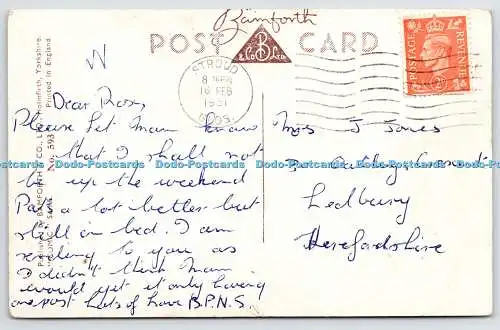 Bamforth
POST CARD
B
& Co Ltd
STROUD
16 FEB
1951
GLOS.
POSTAGE REVENUE
Dear Ross,
Please let Mam know
that I shall not
be up the weekend
Pa's a lot better but
still in bed. I am
sending to you as
I didn't think Mam
would get it only having
one post. Lots of love B.P.N.S.
Mrs J Jones
Ledbury
Herefordshire
Published by BAMFORTH & CO., LTD., Holmfirth, Yorkshire.
"COMIC" SERIES No. 593 Printed in England
Dodo-Postcards Dodo-Postcards Dodo-Postcards Dodo-Postcards Dodo-Postcards